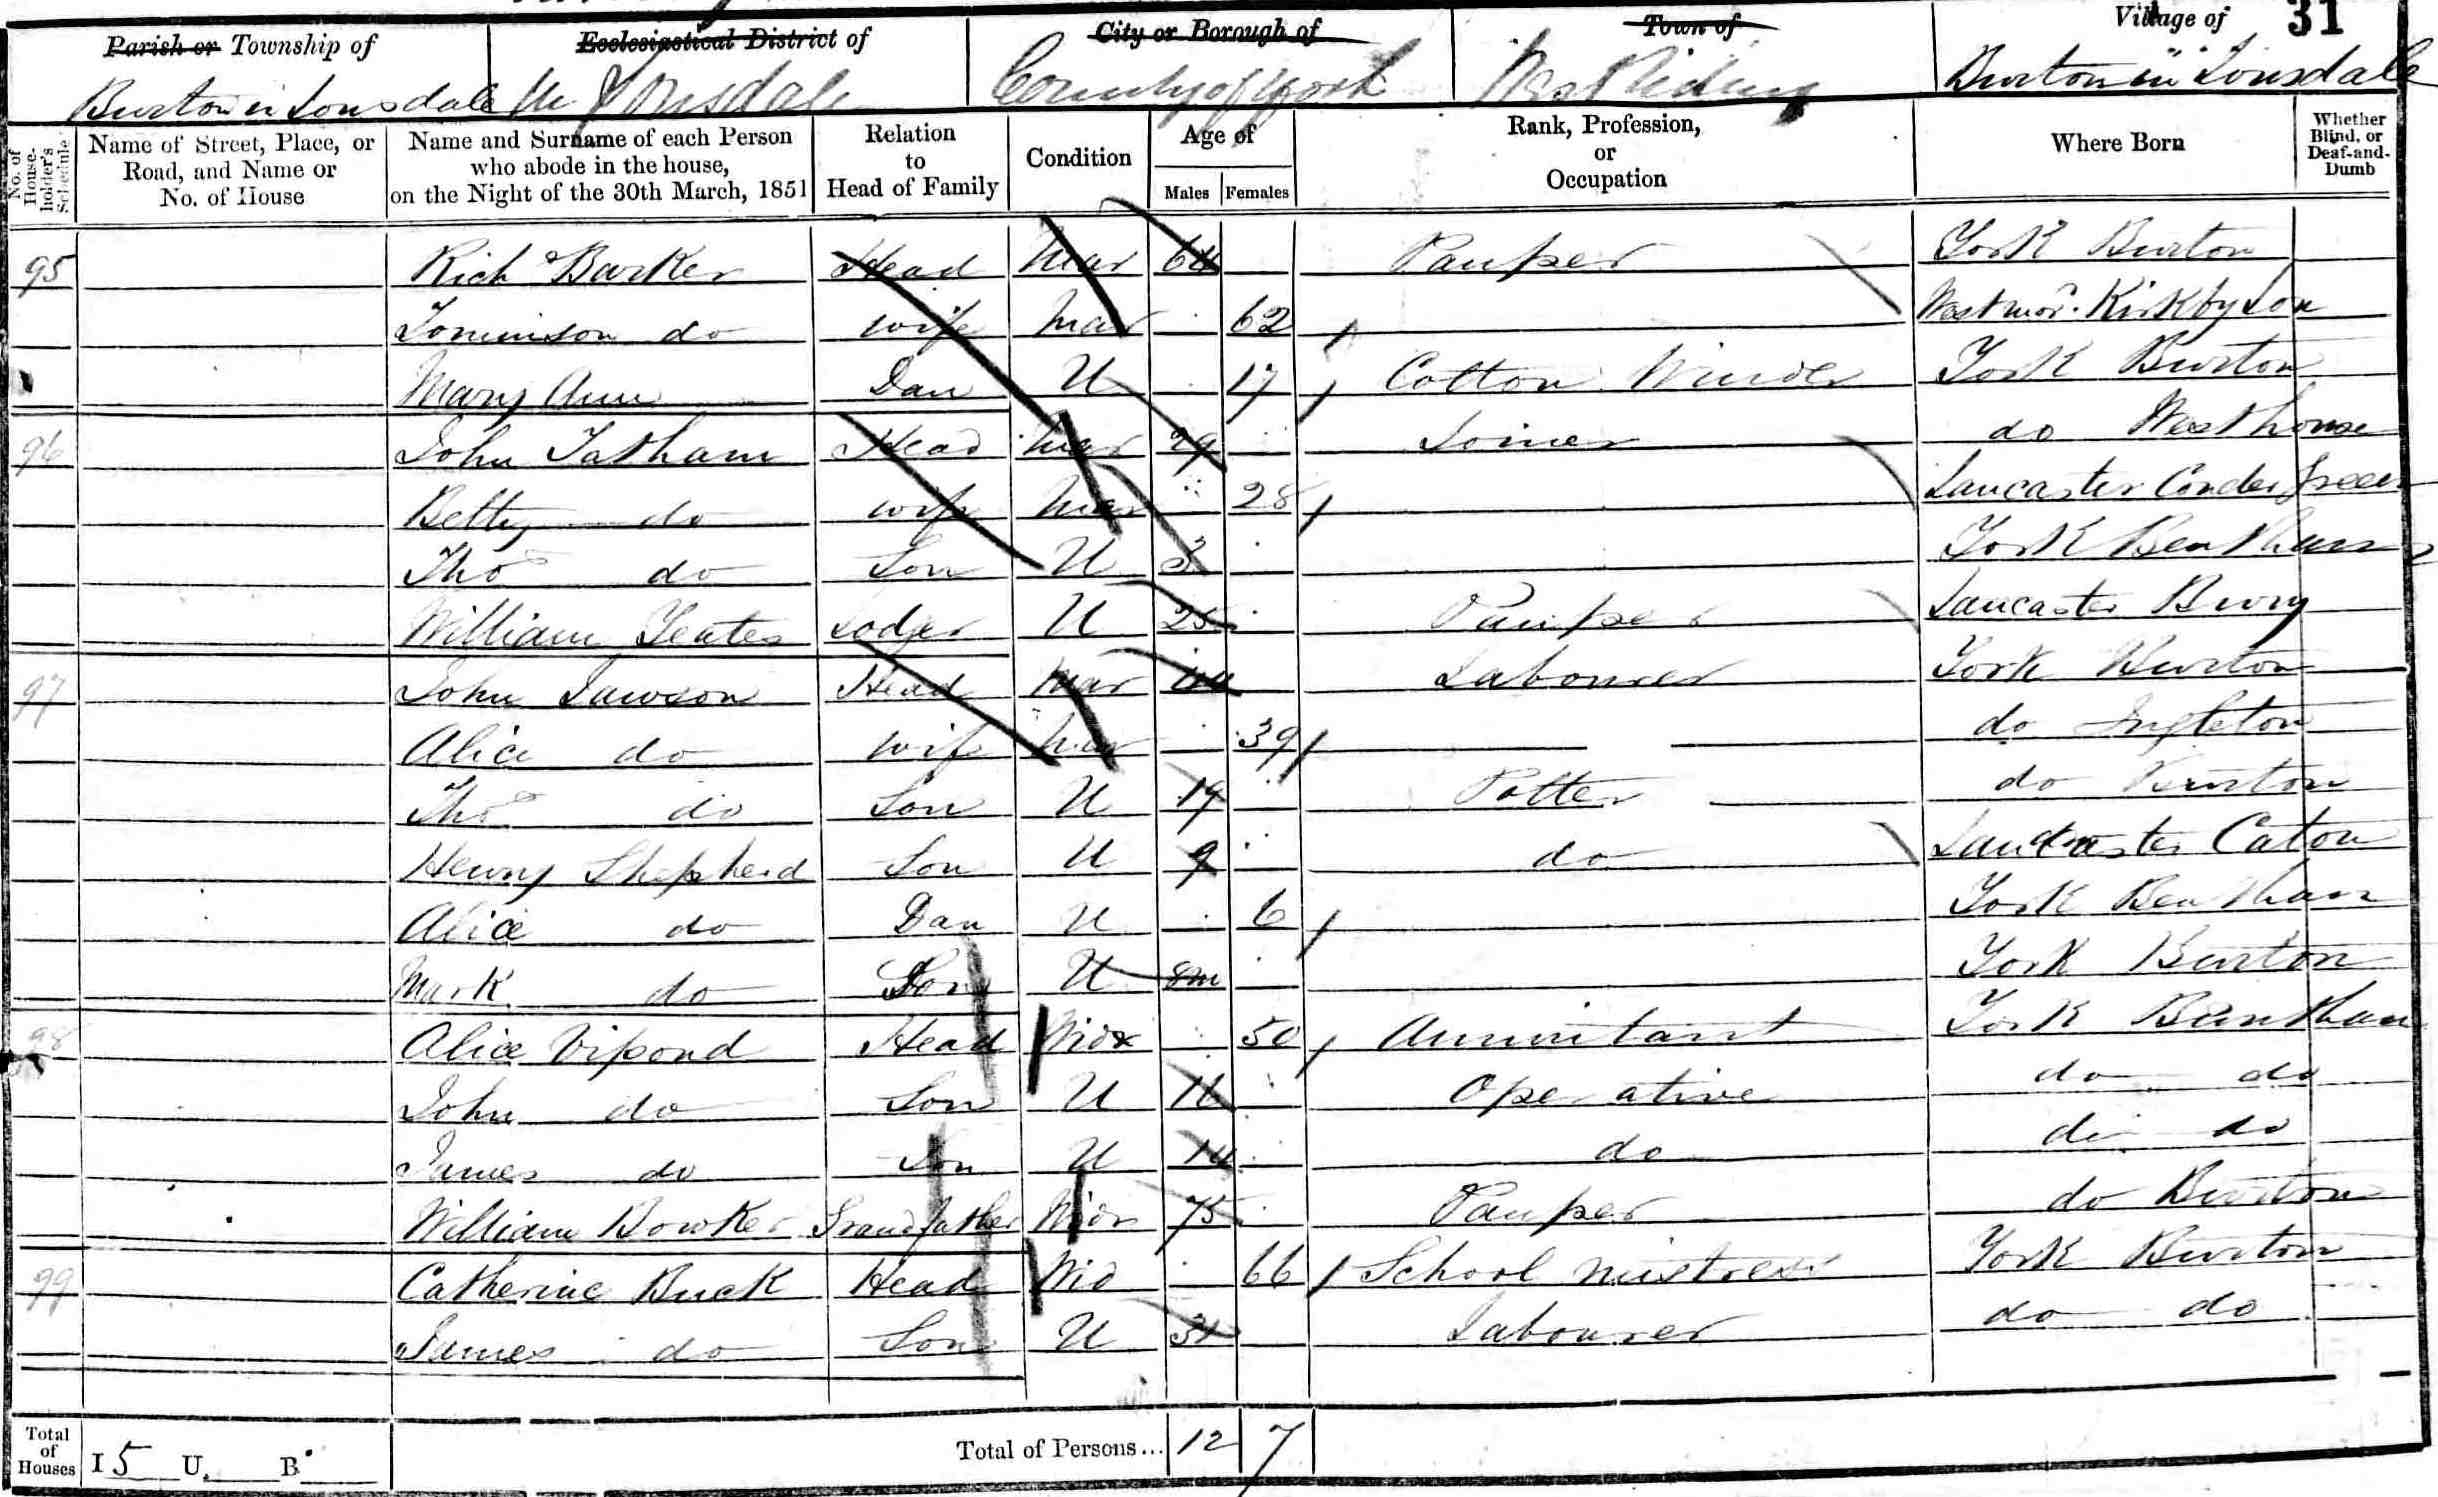 Parish or Township of Ecclesiastical District of City or Borough of Town of Village of 31
Burton in Lonsdale Lonsdale County of York West Riding Burton in Lonsdale
No. of House-holder's Schedule
Name of Street, Place, or Road, and Name or No. of House
Name and Surname of each Person who abode in the house, on the Night of the 30th March, 1851
Relation to Head of Family
Condition
Age of
Males Females
Rank, Profession, or Occupation
Where Born
Whether Blind, or Deaf-and-Dumb
95 Rich Barker Head Mar 64 Pauper York Burton
Tominson do wife Mar 62 Westmor. Kirkby Lon
Mary Ann Dau U 17 Cotton Winder York Burton
96 John Tatham Head Mar 29 Joiner do Westhouse
Betty do wife Mar 28 Lancaster Conder Green
Tho do Son U 3 York Bentham
William Yeates Lodger U 25 Pauper Lancaster Bury
97 John Lawson Head Mar 44 Labourer York Burton
Alice do wife Mar 39 do Ingleton
Tho do Son U 19 Potter do Burton
Henry Shepherd Son U 9 do Lancaster Caton
Alice do Dau U 6 York Bentham
Mark do Son U 8m York Burton
98 Alice Vipond Head Widr 50 Annuitant York Bentham
John do Son U 16 Operative do do
James do Son U 14 do do do
William Bowker Grandfather Widr 75 Pauper do Burton
99 Catherine Buck Head Wid 66 School Mistress York Burton
James do Son U 31 Labourer do do
Total of Houses I 5 U. B Total of Persons... 12 7